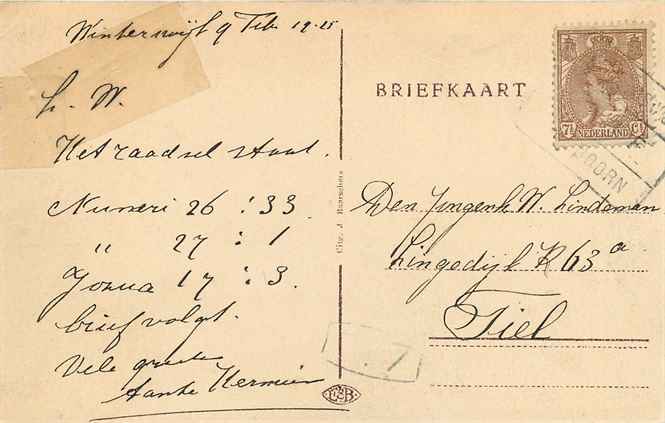 Winterswijk 9 Feb. 1925
L. W.
Het raadsel staat.
Numeri 26 : 33
" 27 : 1
Jozua 17 : 3.
brief volgt.
Vele groete
Tante Hermien
BRIEFKAART
Uitg. J.
7½ Ct
NEDERLAND
HOORN
Den Jongenh. W. Lindeman
Lingedijk K 63 a
Tiel
. 7